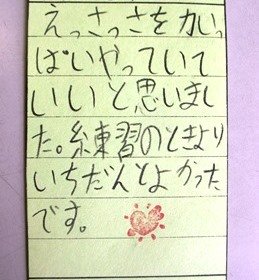 えっさっさを力いっ
ぱいやっていて
いいと思いまし
た。練習のときより
いちだんとよかった
です。